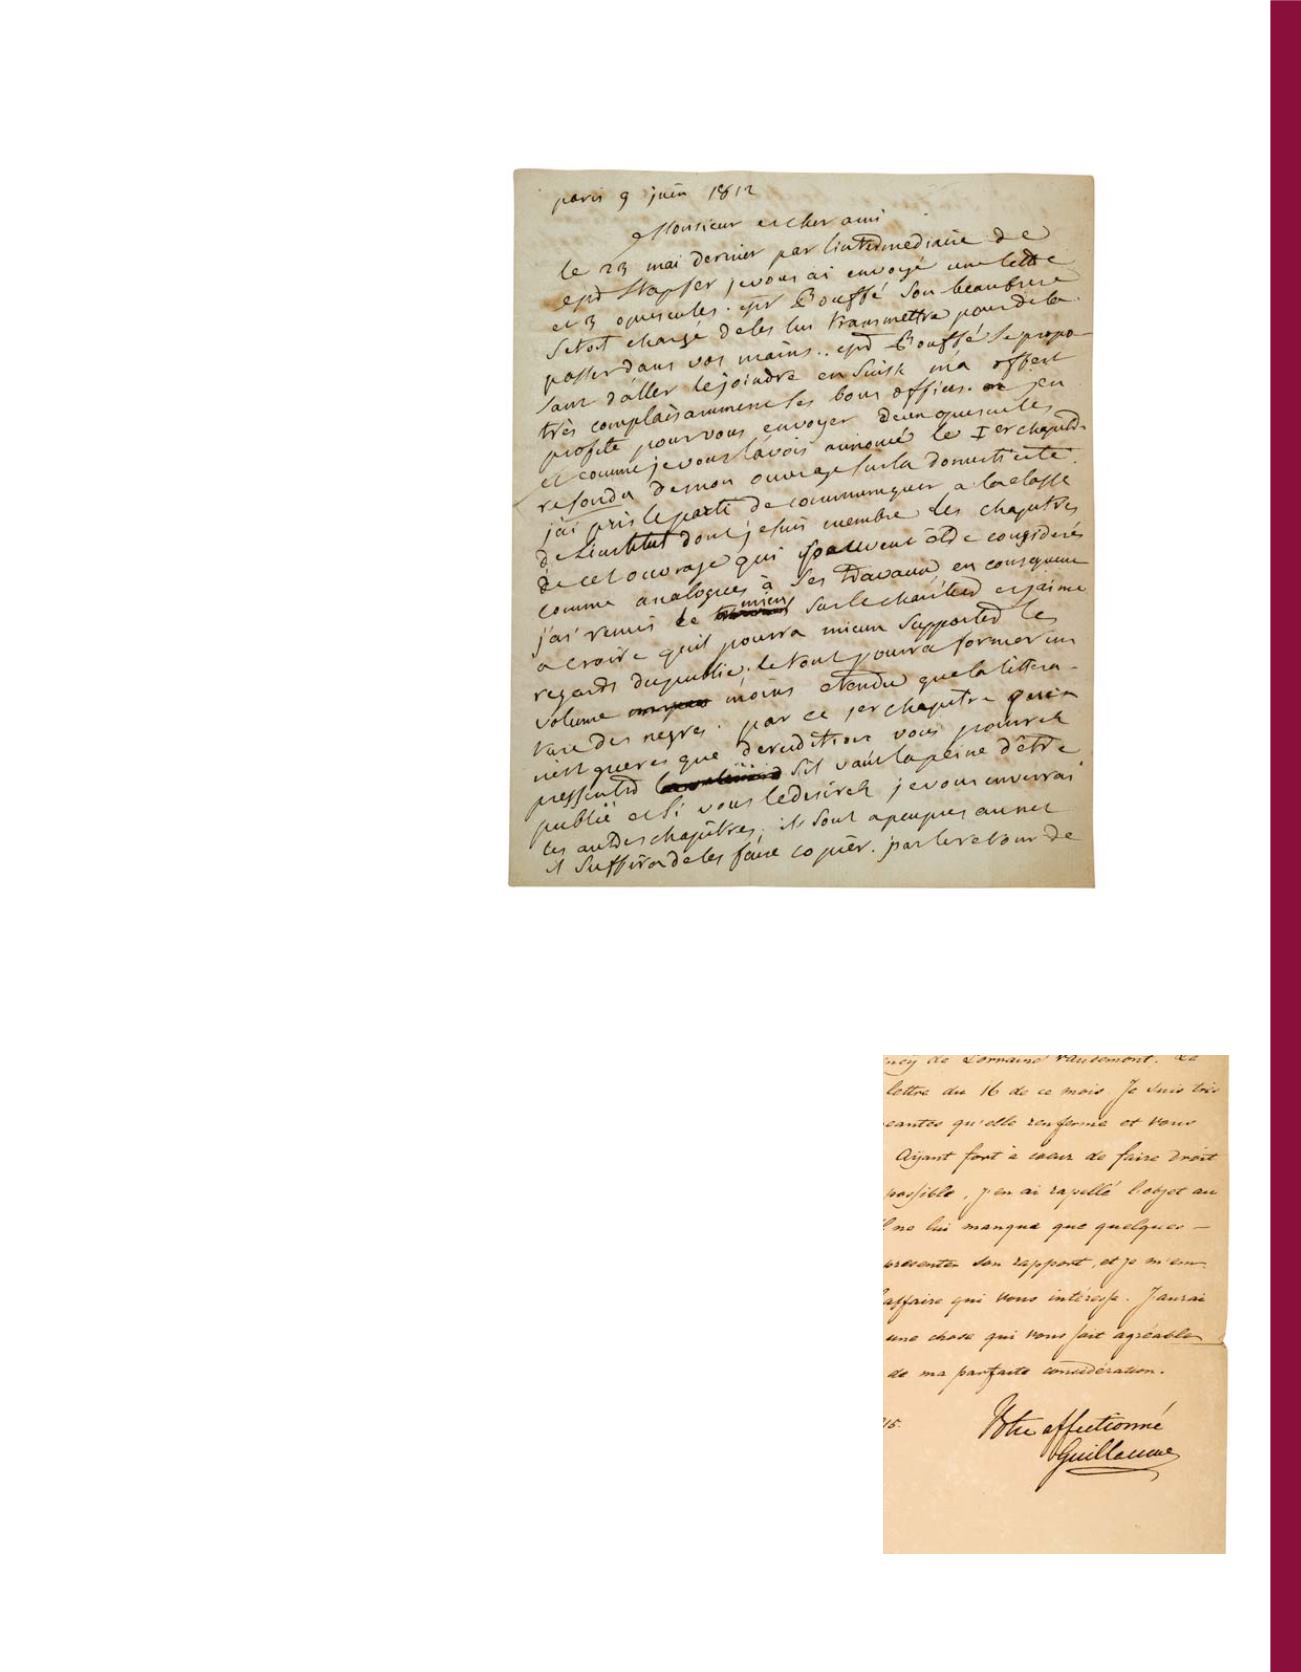 paris 9 juin 1812
Monsieur et cher ami
le 23 mai dernier par lintermediaire de
Stapfer je vous ai envoyé une lettre
et 3 opuscules. Mr Bouffé son beaufrere
setoit chargé de les lui transmettre pour de la
passer dans vos mains.. Bouffé se propo-
sant d'aller le joindre en Suisse m'a offert
très complaisamment ses bons offices. jen
profite pour vous envoyer deux opuscules
et comme je vous lavois annoncé le Ier chapitre
refondu de mon ouvrage sur la domesticité.
j'ai pris le parti de communiquer a la classe
de Linstitut dont je suis membre les chapitres
de cet ouvrage qui peuvent être considerés
comme analogues à ses travaux en consequence
j'ai remis le mien sur le chantier et j'aime
a croire quil pourra mieux supporter les
regards du public. le tout pourra former un
volume moins etendu que la littera-
ture des negres. par ce 1er chapitre qui
n'est gueres que derudition vous pourrez
pressentir sil vaut la peine d'être
publié et si vous le desirez je vous enverrai
les autres chapitres. ils sont a peu pres au net
il suffira de les faire copier. par le retour de
de Lorraine Vaudemont. Le
lettre du 16 de ce mois. Je suis très
qu'elle renferme et vous
Ayant fort à coeur de faire droit
possible, j'en ai rapellé l'objet au
ne lui manque que quelques —
presenter son rapport, et je m'em-
affaire qui vous intéresse. J'aurai
une chose qui vous soit agréable
de ma parfaite considération.
15.
Votre affectionné
Guillaume